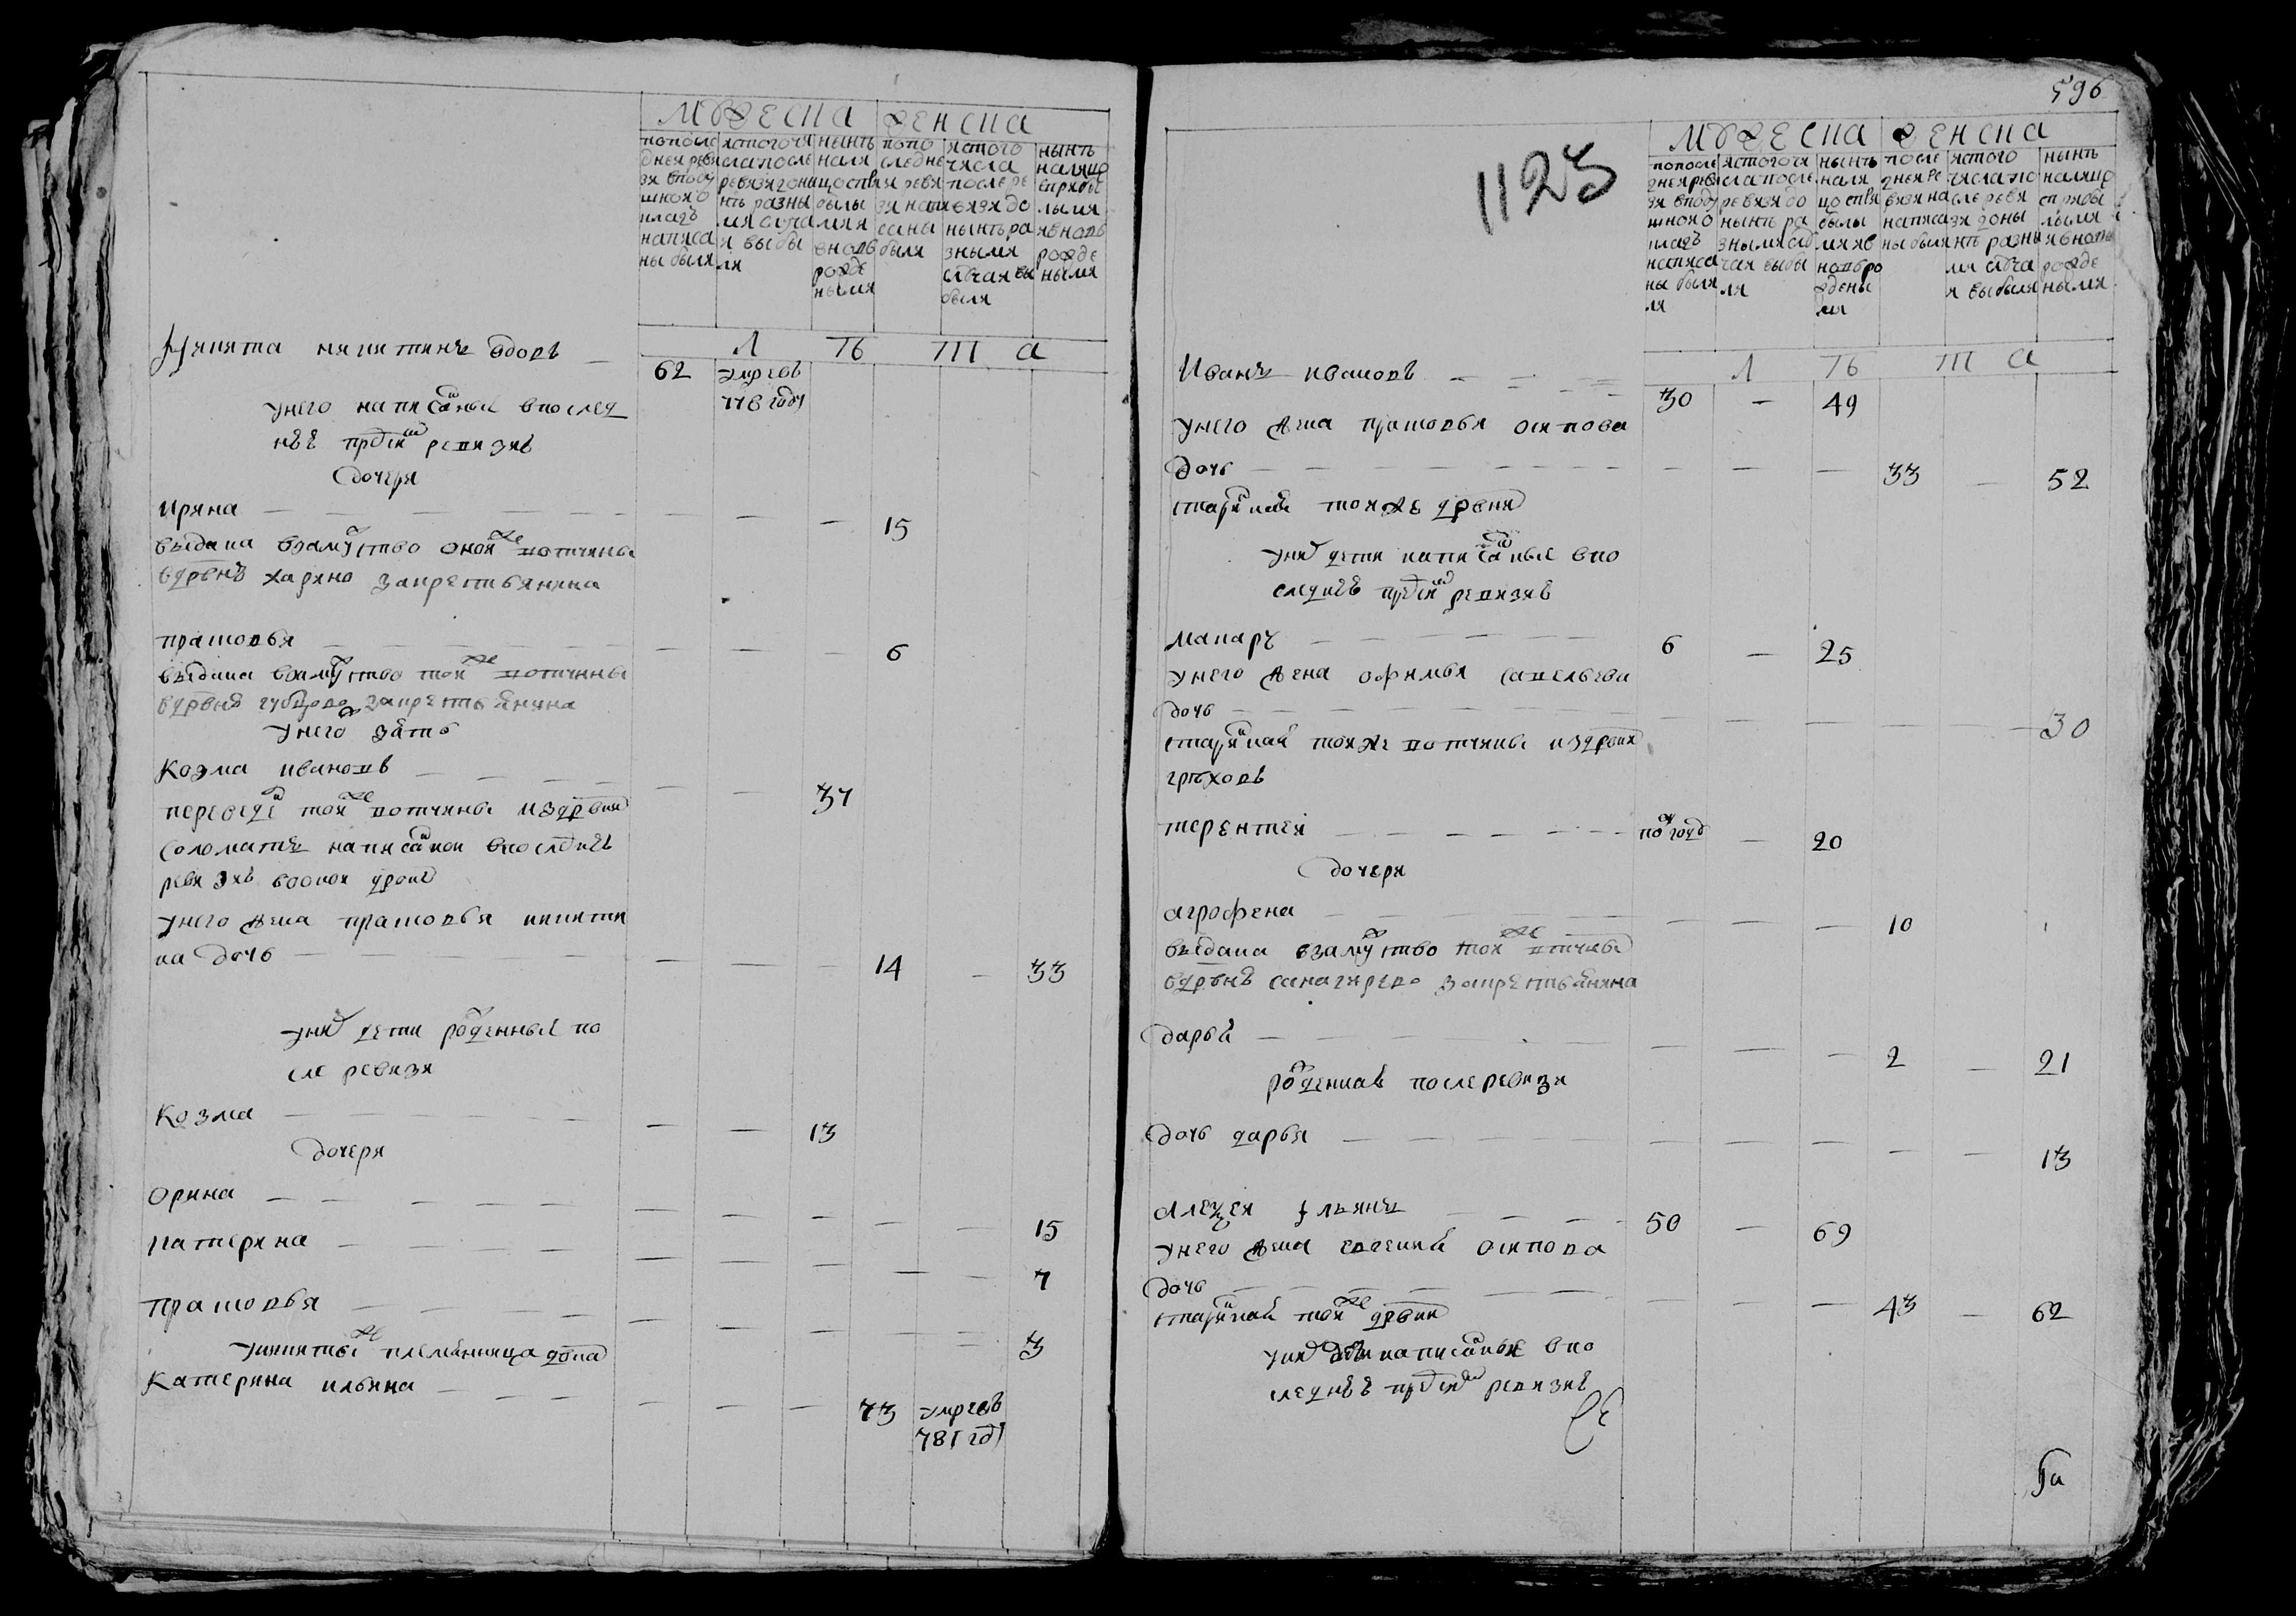 МУЖЕСКА ЖЕНСКА
пополе
дней реви
зи вподу
шной о
кладъ
написа
ны были
истого чи
сла после
ревизи до ны
нѣ разны
ми случа
и выбы
ли
нынѣ
нали
цо ств
былы
ми и
вновь
рожде
ными
попо
следне
й реви
зи напи
саны
были
истого
числа
после ре
визи до
нынѣ ра
зными
случаи вы
были
нынѣ
налицо
сприбы
лыми
и вновь
рожде
ными
Л Ѣ Т А
Никита никитинъ вдовъ 62 умре въ
776 году
унего написаные впослед
нѣе пред сим ревизиѣ
дочери
Ирина 15
выдана взамужство оной же вотчины
вдрвнѣ харино закрестьянина
прасковья 6
выдана взамужство той же вотчины
вдрвню закрестьянина
унего зять
Козма ивановъ 37
переведен той же вотчины издрвни
соломатъ написанои впоследнеѣ
ревизиѣ вооной дрвне
унего жена прасковья никити
на дочь 14 33
уних дети рожденные по
сле ревизи
Козма 13
дочери
орина 15
катерина 7
прасковья 3
уникиты же племянница двка
Катерина ильина 73 умре въ
781 году
596
1123
МУЖЕСКА ЖЕНСКА
пополе
дней реви
зи вподу
шной о
кладъ
написа
ны были
истого чи
сла после
ревизи до
нынѣ ра
зными слу
чаи выбы
ли
нынѣ
нали
цо ств
былы
ми и в
новь ро
ждены
ми
после
дней ре
визи на
писа
ны были
истого
числа по
сле реви
зи доны
нѣ разны
ми случа
и выбыли
нынѣ
налицо
сприбы
лыми
и вновь
рожде
ными
Л Ѣ Т А
Иванъ ивановъ 30 49
унего жена прасковья осипова
дочь 33 52
старинная той же дрвни
уних дети написаные впо
следнеѣ пред сим ревизиѣ
макаръ 6 25
унего жена офимья савельева
дочь 30
старинная той же вотчины издрвни
грѣховъ
терентей полгоду 20
дочери
агрофена 10
выдана взамужство той же вотчины
вдрвнѣ закрестьянина
дарья 2 21
рожденная после ревизи
дочь дарья 13
Алекѣей ульянъ 50 69
унего жена евгения осипова
дочь 43 62
старинная той же дрвни
уних дѣти написаные впо
следнѣе пред сим ревизиѣ